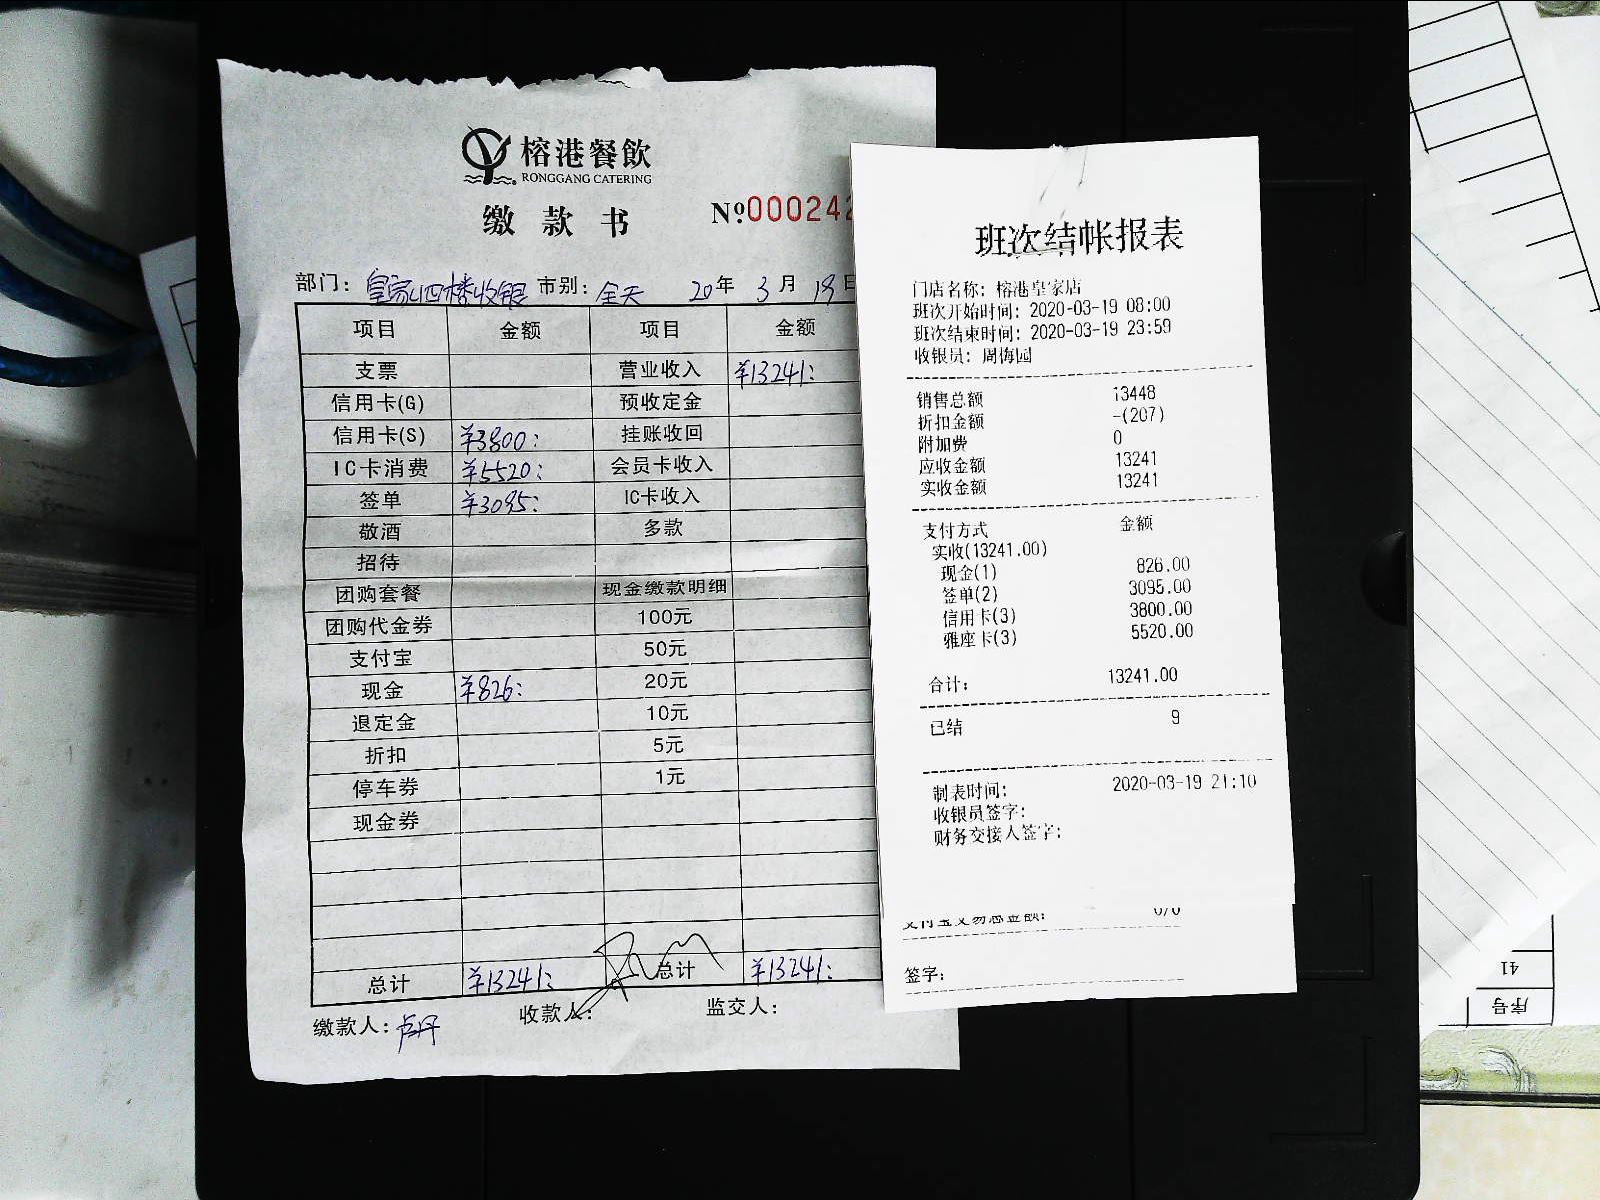 榕港餐飲
RONGGANG CATERING
缴款书
№000242
部门：皇家四楼收银 市别：全天 20年 3月 19日
项目 金额 项目 金额
支票 营业收入 ¥13241:
信用卡(G) 预收定金
信用卡(S) ¥3800: 挂账收回
IC卡消费 ¥5520: 会员卡收入
签单 ¥3095: IC卡收入
敬酒 多款
招待
团购套餐 现金缴款明细
团购代金券 100元
支付宝 50元
现金 ¥826: 20元
退定金 10元
折扣 5元
停车券 1元
现金券
总计 ¥13241: 总计 ¥13241:
缴款人：卢丹 收款人： 监交人：
班次结帐报表
门店名称：榕港皇家店
班次开始时间：2020-03-19 08:00
班次结束时间：2020-03-19 23:59
收银员：周梅园
销售总额 13448
折扣金额 -(207)
附加费 0
应收金额 13241
实收金额 13241
支付方式 金额
实收(13241.00)
现金(1) 826.00
签单(2) 3095.00
信用卡(3) 3800.00
雅座卡(3) 5520.00
合计： 13241.00
已结 9
制表时间： 2020-03-19 21:10
收银员签字：
财务交接人签字：
支付宝交易总金额： 0/0
签字：
41
序号